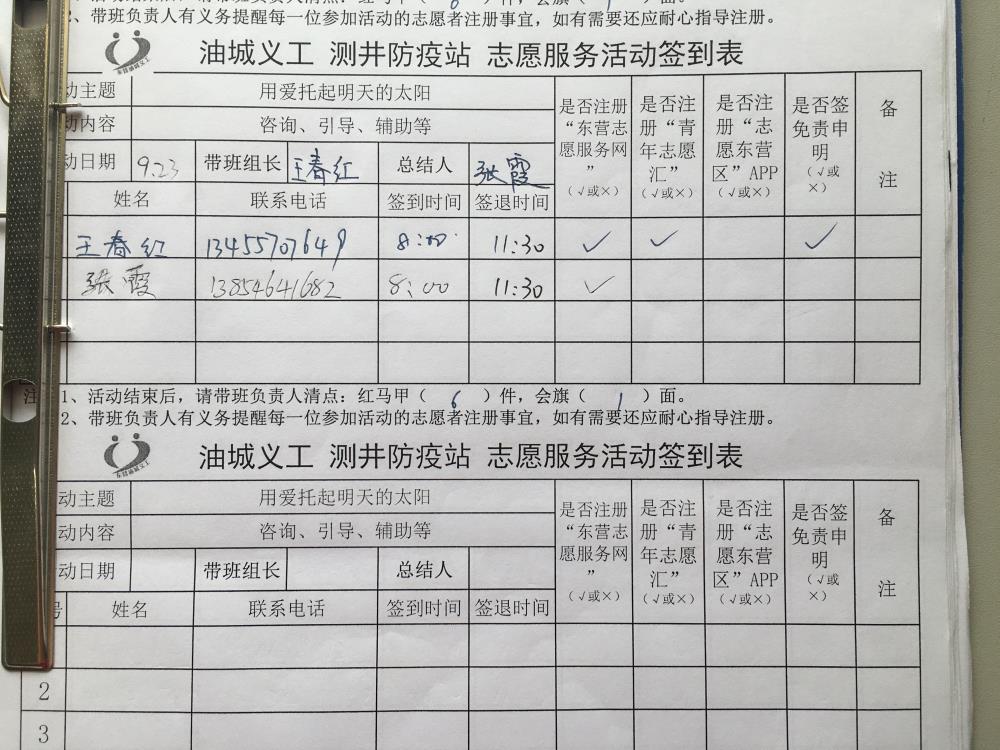 2、带班负责人有义务提醒每一位参加活动的志愿者注册事宜，如有需要还应耐心指导注册。
油城义工 测井防疫站 志愿服务活动签到表
动主题 用爱托起明天的太阳 是否注册“东营志愿服务网”（√或×） 是否注册“青年志愿汇”（√或×） 是否注册“志愿东营区”APP（√或×） 是否签免责申明（√或×） 备注
动内容 咨询、引导、辅助等
动日期 9.23 带班组长 王春红 总结人 张霞
姓名 联系电话 签到时间 签退时间
王春红 13455707649 8:00 11:30 ✓ ✓ ✓
张霞 13854641682 8:00 11:30 ✓
注 1、活动结束后，请带班负责人清点：红马甲（ 6 ）件，会旗（ 1 ）面。
2、带班负责人有义务提醒每一位参加活动的志愿者注册事宜，如有需要还应耐心指导注册。
东营油城义工
油城义工 测井防疫站 志愿服务活动签到表
动主题 用爱托起明天的太阳 是否注册“东营志愿服务网”（√或×） 是否注册“青年志愿汇”（√或×） 是否注册“志愿东营区”APP（√或×） 是否签免责申明（√或×） 备注
动内容 咨询、引导、辅助等
动日期 带班组长 总结人
号 姓名 联系电话 签到时间 签退时间
2
3